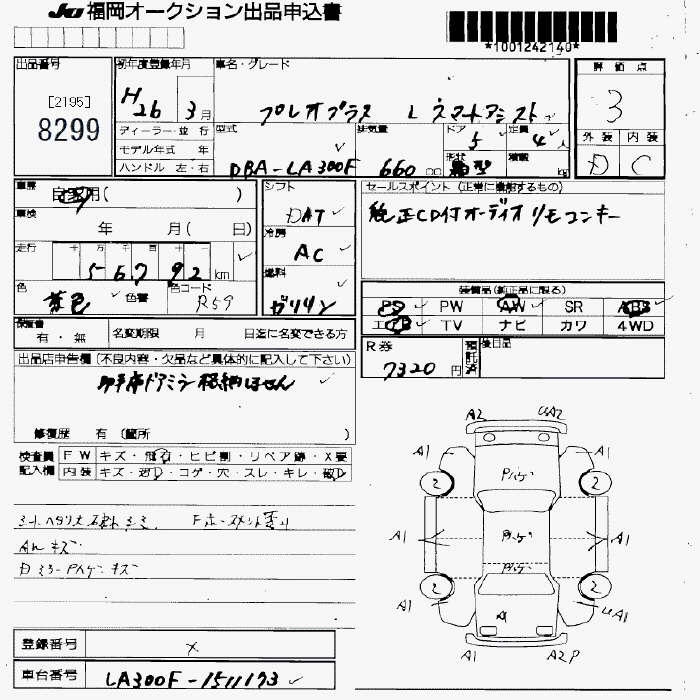 JU 福岡オークション出品申込書
*1001242140*
出品番号
[2195]
8299
初年度登録年月
H26 3月
車名・グレード
プレオプラス L スマートアシスト
評価点
3
外装 内装
D C
ディーラー・並行
モデル年式 年
ハンドル 左・右
型式
DBA-LA300F
排気量
660 cc
ドア
5
形状
箱型
定員
4人
積載
kg
車歴
自家用( )
車検
年 月( 日)
走行
十 万 千 百 十 一
5 6 7 9 2 km
色
茶色
色替
色コード
R59
シフト
DAT
冷房
AC
燃料
ガソリン
セールスポイント (正常に機能するもの)
純正CD付オーディオ リモコンキー
装備品(純正品に限る)
PS PW AW SR ABS
エアB TV ナビ カワ 4WD
保証書
有・無
名変期限 月 日迄に名変できる方
R券
7320円
預託済
後日品
出品店申告欄 (不良内容・欠品など具体的に記入して下さい)
助手席ドアミラー格納しません
修復歴 有 (箇所 )
検査員
記入欄
FW キズ・飛石・ヒビ割・リペア跡・X要
内装 キズ・汚D・コゲ・穴・スレ・キレ・破D
キズ
キズ
A2 UA2
A1 A1
2 2
A1 A1
2 2
A1 UA1
A
A1 A2P
登録番号
×
車台番号
LA300F-1511173